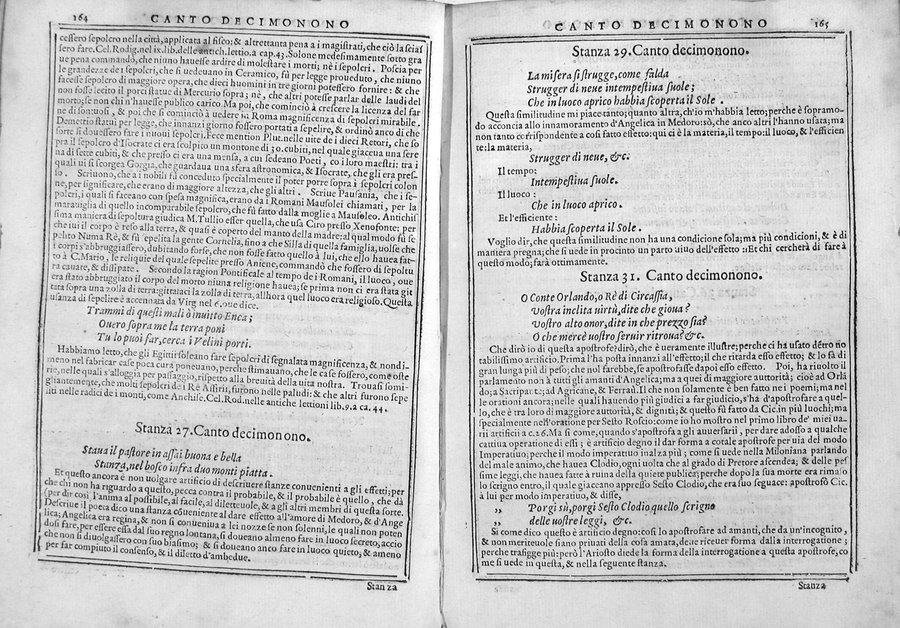 164 CANTO DECIMONONO
cessero sepolcro nella città, applicata al fisco; & altrettanta pena a i magistrati, che ciò la scias
sero fare. Cel. Rodig. nel ix. lib. delle antich. lettio. a cap. 43. Solone medesimamente sotto gra
ue pena commandò, che niuno hauesse ardire di molestare i morti; nè i sepolcri. Poscia per
le grandezze de i sepolcri, che si uedeuano in Ceramico, fù per legge proueduto, che niuno
facesse sepolcro di maggiore opera, che dieci huomini in tre giorni potessero fornire: & che
non fosse lecito il porci statue di Mercurio sopra; nè, che altri potesse parlar delle laudi del
morto; se non chi n'hauesse publico carico. Ma poi, che cominciò a crescere la licenza del far
ne di sontuosi, & poi che si cominciò a uedere in Roma magnificenza di sepolcri mirabile.
Demetrio statuì per legge, che innanzi giorno fossero portati a sepelire, & ordinò anco di che
sorte si douessero fare i nuoui sepolcri. Fece mention Plut. nelle uite de i dieci Retori, che so
pra il sepolcro d'Isocrate ci era scolpito un montone di 30. cubiti, nel quale giaceua una sere
na di sette cubiti, & che presso ci era una mensa, a cui sedeano Poeti, co i loro maestri: tra i
quali ui si scorgea Gorgia, che guardaua una sfera astronomica, & Isocrate, che gli era pres-
so. Scriuono, che a i nobili fù conceduto specialmente il poter porre sopra i sepolcri colon
ne, per significare, che erano di maggiore altezza, che gli altri. Scriue Pausania, che i se-
polcri, i quali si faceano con spesa magnifica, erano da i Romani Mausolei chiamati, per la
marauiglia di quello incomparabile sepolcro, che fù fatto dalla moglie a Mausoleo. Antichis
sima maniera di sepoltura giudica M. Tullio esser quella, che usa Ciro presso Xenofonte: per
che iui il corpo è reso alla terra, & quasi è coperto del manto della madre: al qual modo fù se
pelito Numa Rè, & fù sepelita la gente Cornelia, sino a che Silla di quella famiglia, uolse che
i corpi s'abbruggiassero, dubitando forse, che non fosse fatto quello à lui, che ello hauea fat-
to à C. Mario, le reliquie del quale sepelite presso Aniene, commandò che fossero di sepoltu
ra cauare, & dissipate. Secondo la ragion Pontificale al tempo de i Romani, il luoco, oue
era stato abbruggiato il corpo del morto niuna religione hauea; se prima non ci era stata git
tata sopra una zolla di terra: gittataci la zolla di terra, allhora quel luoco era religioso. Questa
usanza di sepelire è accennata da Virg. nel 6. oue dice.
Trammi di questi mali ò inuitto Enea;
Ouero sopra me la terra poni
Tu lo puoi far, cerca i Velini porti.
Habbiamo letto, che gli Egittii soleano fare sepolcri di segnalata magnificenza, & nondi-
meno nel fabricar case poca cura poneuano, perche stimauano, che le case fossero, come oste
rie, nelle quali s'alloggia per passaggio, rispetto alla breuità della uita nostra. Trouasi somi-
gliantemente, che molti sepolcri de i Rè Assirii, furono nelle paludi: & che altri furono sepe
liti nelle radici de i monti, come Anchise. Cel. Rod. nelle antiche lettioni lib. 9. a ca. 44.
Stanza 27. Canto decimonono.
Staua il pastore in assai buona e bella
Stanza, nel bosco infra duo monti piatta.
Et questo ancora è non uolgare artificio di descriuere stanze conuenienti a gli effetti; per
che chi non ha riguardo a questo, pecca contra il probabile, & il probabile è quello, che dà
(per dir così) l'anima al possibile, al facile, al diletteuole, & a gli altri membri di questa sorte.
Descriue il poeta dico una stanza cōueniente al dare effetto all'amore di Medoro, & d'Ange
lica; Angelica era regina, & non si conueniua a lei nozze se non solenni, le quali non poten
dosi fare, per essere essa dal suo regno lontana, si doueano almeno fare in luoco secreto, accio
che non si diuolgassero con suo biasimo; & si doueano anco fare in luoco quieto, & ameno
per far compiuto il consenso, & il diletto d'ambedue.
Stanza
CANTO DECIMONONO 165
Stanza 29. Canto decimonono.
La misera si strugge, come falda
Strugger di neue intempestiua suole;
Che in luoco aprico habbia scoperta il Sole.
Questa similitudine mi piace tanto; quanto altra, ch'io m'habbia letto: perche è sopramo-
do acconcia allo innamoramento d'Angelica in Medoro: sò, che anco altri l'hanno usata; ma
non tanto corrispondente a così fatto effetto: qui ci è la materia, il tempo: il luoco, & l'efficien
te: la materia,
Strugger di neue, &c.
Il tempo:
Intempestiua suole.
Il luoco:
Che in luoco aprico.
Et l'efficiente:
Habbia scoperta il Sole.
Voglio dir, che questa similitudine non ha una condicione sola; ma più condicioni, & è di
maniera pregna; che si uede in procinto un parto uiuo dell'effetto: Et chi cercherà di fare à
questo modo; farà ottimamente.
Stanza 31. Canto decimonono.
O Conte Orlando, o Rè di Circassia,
Vostra inclita uirtù, dite che gioua?
Vostro alto onor, dite in che prezzo sia?
O che mercè uostro seruir ritroua? &c.
Che dirò io di questa apostrofe? dirò, che è ueramente illustre; perche ci hà usato detro no
tabilissimo artificio. Prima l'ha posta innanzi all'effetto; il che ritarda esso effetto; & lo fà di
gran lunga più di peso; che nol sarebbe, se apostrofasse dapoi esso effetto. Poi, ha riuolto il
parlamento non à tutti gli amanti d'Angelica; ma a quei di maggiore auttorità; cioè ad Orlā
do; a Sacripante; ad Agricane, & Ferraù. Il che non solamente è ben fatto ne i poemi; ma nel
le orationi ancora; nelle quali hauendo più giudici a far giudicio, s'hà d'apostrofare a quel-
lo, che è tra loro di maggiore auttorità, & dignità; & questo fù fatto da Cic. in più luochi; ma
specialmente nell'oratione per Sesto Roscio: come io ho mostro nel primo libro de' miei ua-
rii artificii a c. 26. Ma sì come, quando s'apostrofa a gli auuersarii, per dare adosso a qualche
cattiua operatione di essi; è artificio degno il dar forma a cotale apostrofe per uia del modo
Imperatiuo; perche il modo imperatiuo inalza più; come si uede nella Miloniana parlando
del male animo, che hauea Clodio, ogni uolta che al grado di Pretore ascendea; & delle pes
sime leggi, che hauea fatte à ruina della quiete publica; perche dopo la sua morte era rimaso
lo scrigno entro, il quale giaceano appresso Sesto Clodio, che era suo seguace: apostrofò Cic.
à lui per modo imperatiuo, & disse,
„ Porgi sù, porgi Sesto Clodio quello scrigno
„ delle uostre leggi, &c.
Si come dico questo è artificio degno: così lo apostrofare ad amanti, che da un'incognito,
& non meriteuole siano priuati della cosa amata, dee riceuer forma dalla interrogatione;
perche trafigge più: però l'Ariosto diede la forma della interrogatione a questa apostrofe, co
me si uede in questa, & nella seguente stanza.
Stanza